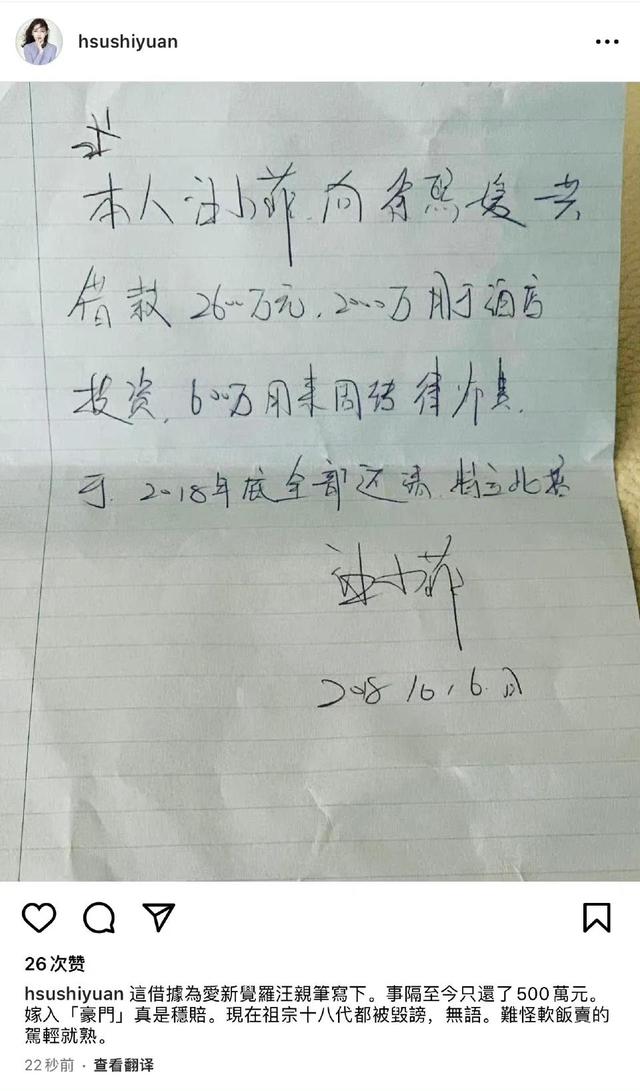 hsushiyuan
本人汪小菲.向徐熙媛共
借款2600万元.2000万用于酒店
投资.600万用来周转律师费.
于.2018年底全部还清.特立此据
汪小菲
2018
26次赞
hsushiyuan 這借據為愛新覺羅汪親筆寫下。事隔至今只還了500萬元。
嫁入「豪門」真是穩賠。現在祖宗十八代都被毀謗，無語。難怪軟飯賣的
駕輕就熟。
22秒前 · 查看翻译